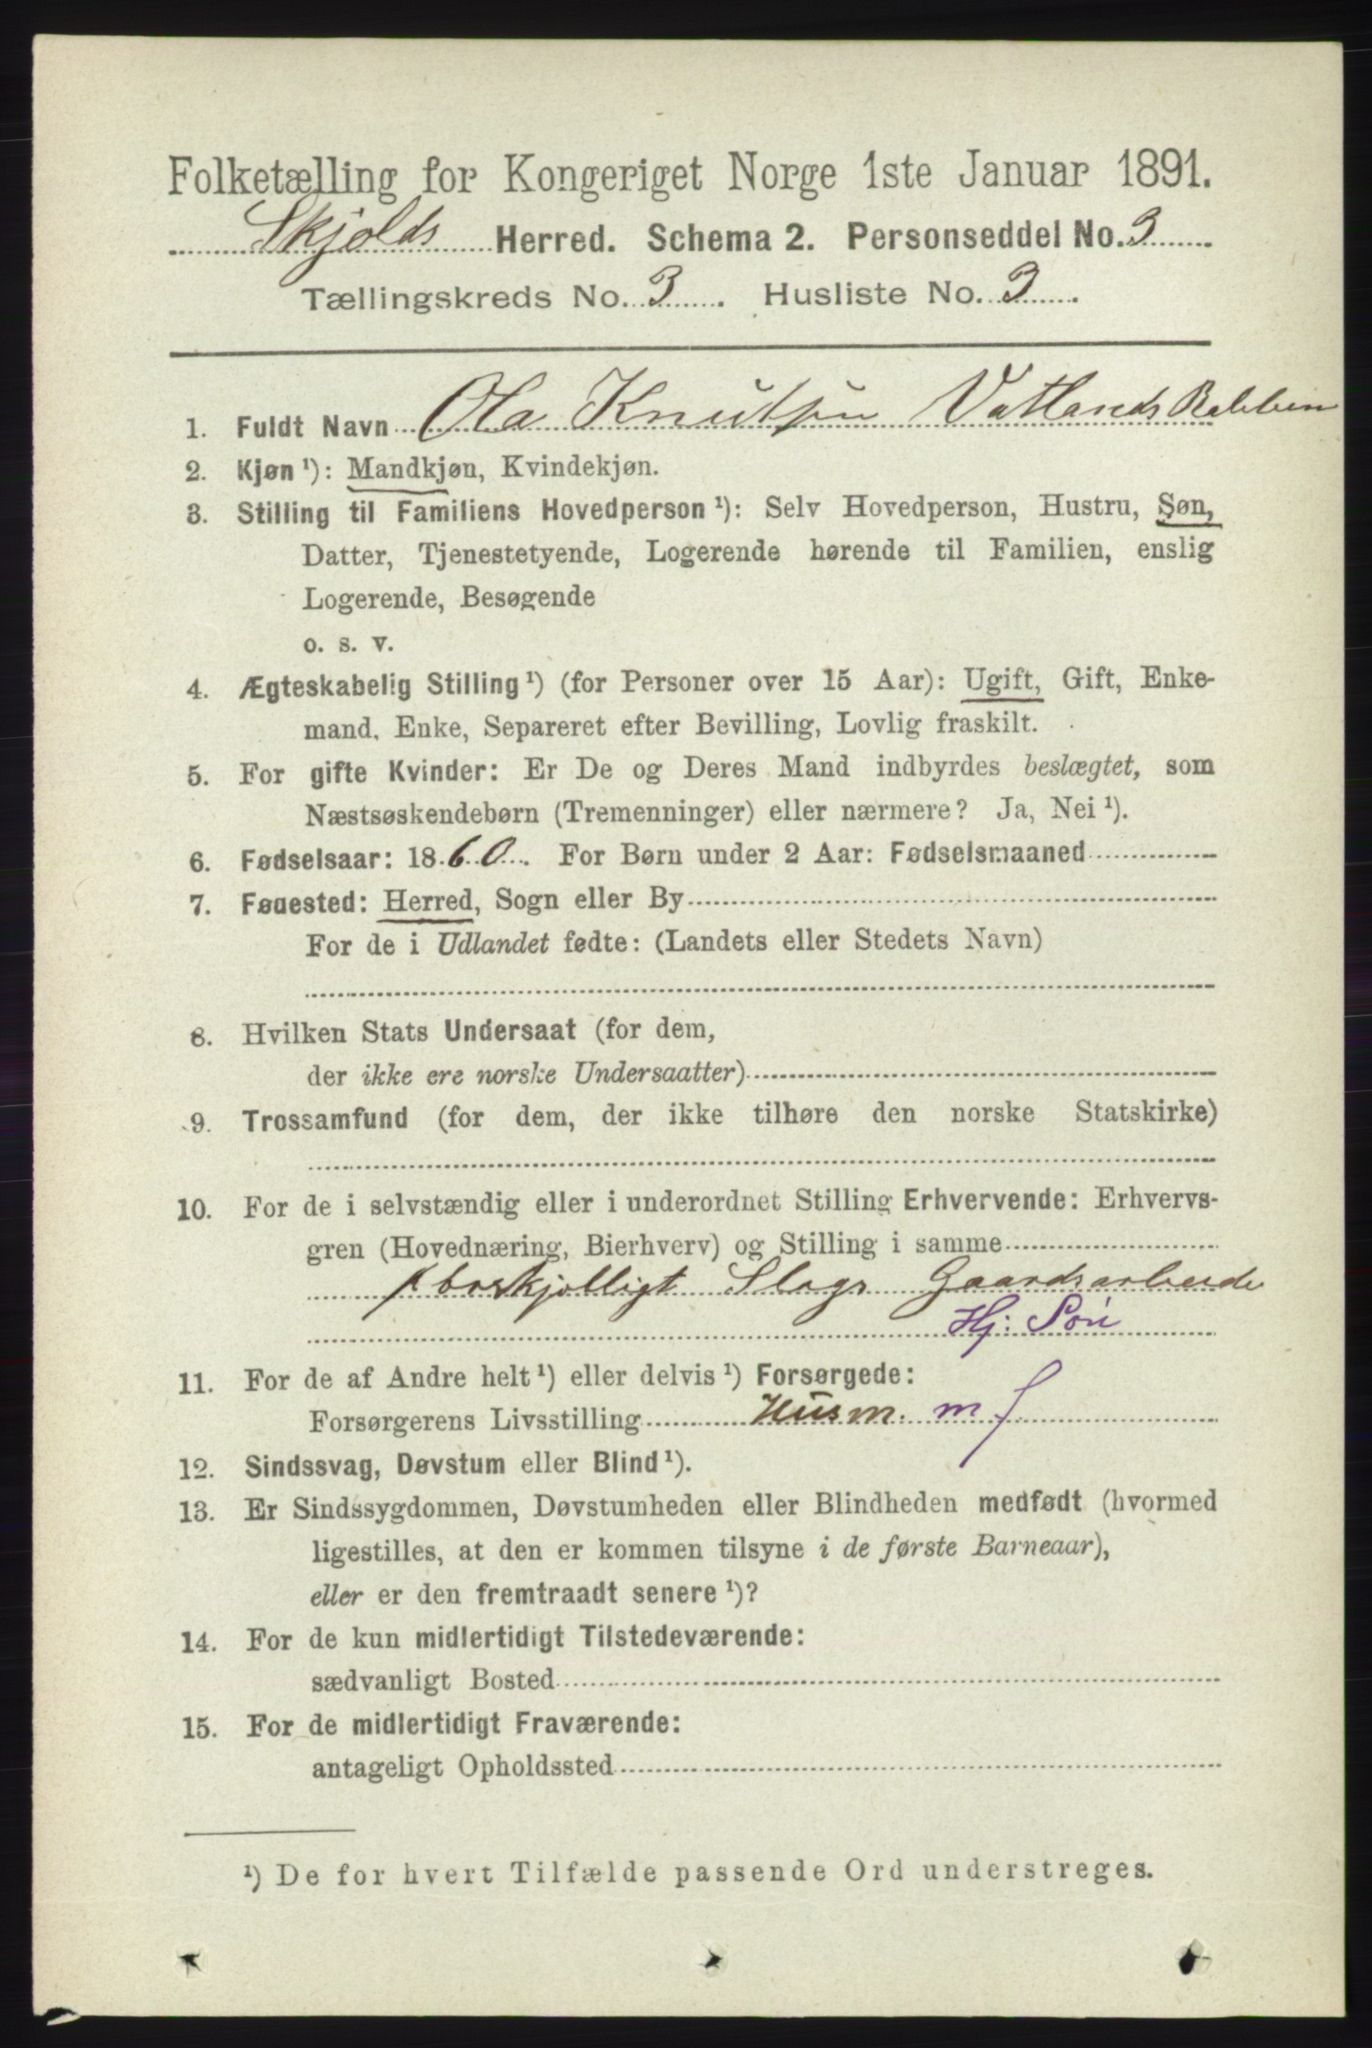 Folketælling for Kongeriget Norge 1ste Januar 1891.
Skjolds Herred. Schema 2. Personseddel No. 3
Tællingskreds No. 3. Husliste No. 3.
1. Fuldt Navn Ola Knutsen Vatlands Rabben
2. Kjøn ¹): Mandkjøn, Kvindekjøn.
3. Stilling til Familiens Hovedperson ¹): Selv Hovedperson, Hustru, Søn,
Datter, Tjenestetyende, Logerende hørende til Familien, enslig
Logerende, Besøgende
o. s. v.
4. Ægteskabelig Stilling ¹) (for Personer over 15 Aar): Ugift, Gift, Enke-
mand, Enke, Separeret efter Bevilling, Lovlig fraskilt.
5. For gifte Kvinder: Er De og Deres Mand indbyrdes beslægtet, som
Næstsøskendebørn (Tremenninger) eller nærmere? Ja, Nei ¹).
6. Fødselsaar: 1860. For Børn under 2 Aar: Fødselsmaaned
7. Fødested: Herred, Sogn eller By
For de i Udlandet fødte: (Landets eller Stedets Navn)
8. Hvilken Stats Undersaat (for dem,
der ikke ere norske Undersaatter)
9. Trossamfund (for dem, der ikke tilhøre den norske Statskirke)
10. For de i selvstændig eller i underordnet Stilling Erhvervende: Erhvervs-
gren (Hovednæring, Bierhverv) og Stilling i samme
forskjelligt Slags Gaardsarbeide
Hj: Søn
11. For de af Andre helt ¹) eller delvis ¹) Forsørgede:
Forsørgerens Livsstilling Husm. m J
12. Sindssvag, Døvstum eller Blind ¹).
13. Er Sindssygdommen, Døvstumheden eller Blindheden medfødt (hvormed
ligestilles, at den er kommen tilsyne i de første Barneaar),
eller er den fremtraadt senere ¹)?
14. For de kun midlertidigt Tilstedeværende:
sædvanligt Bosted
15. For de midlertidigt Fraværende:
antageligt Opholdssted
¹) De for hvert Tilfælde passende Ord understreges.